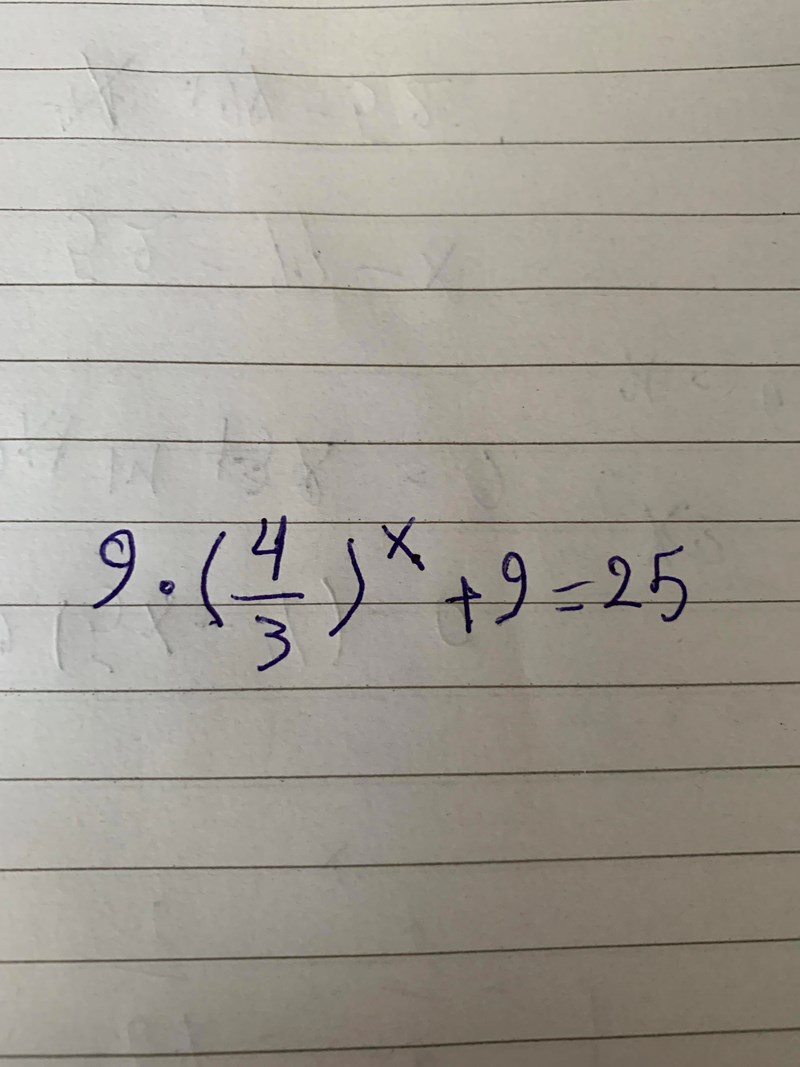 9 · (4/3)^x + 9 = 25